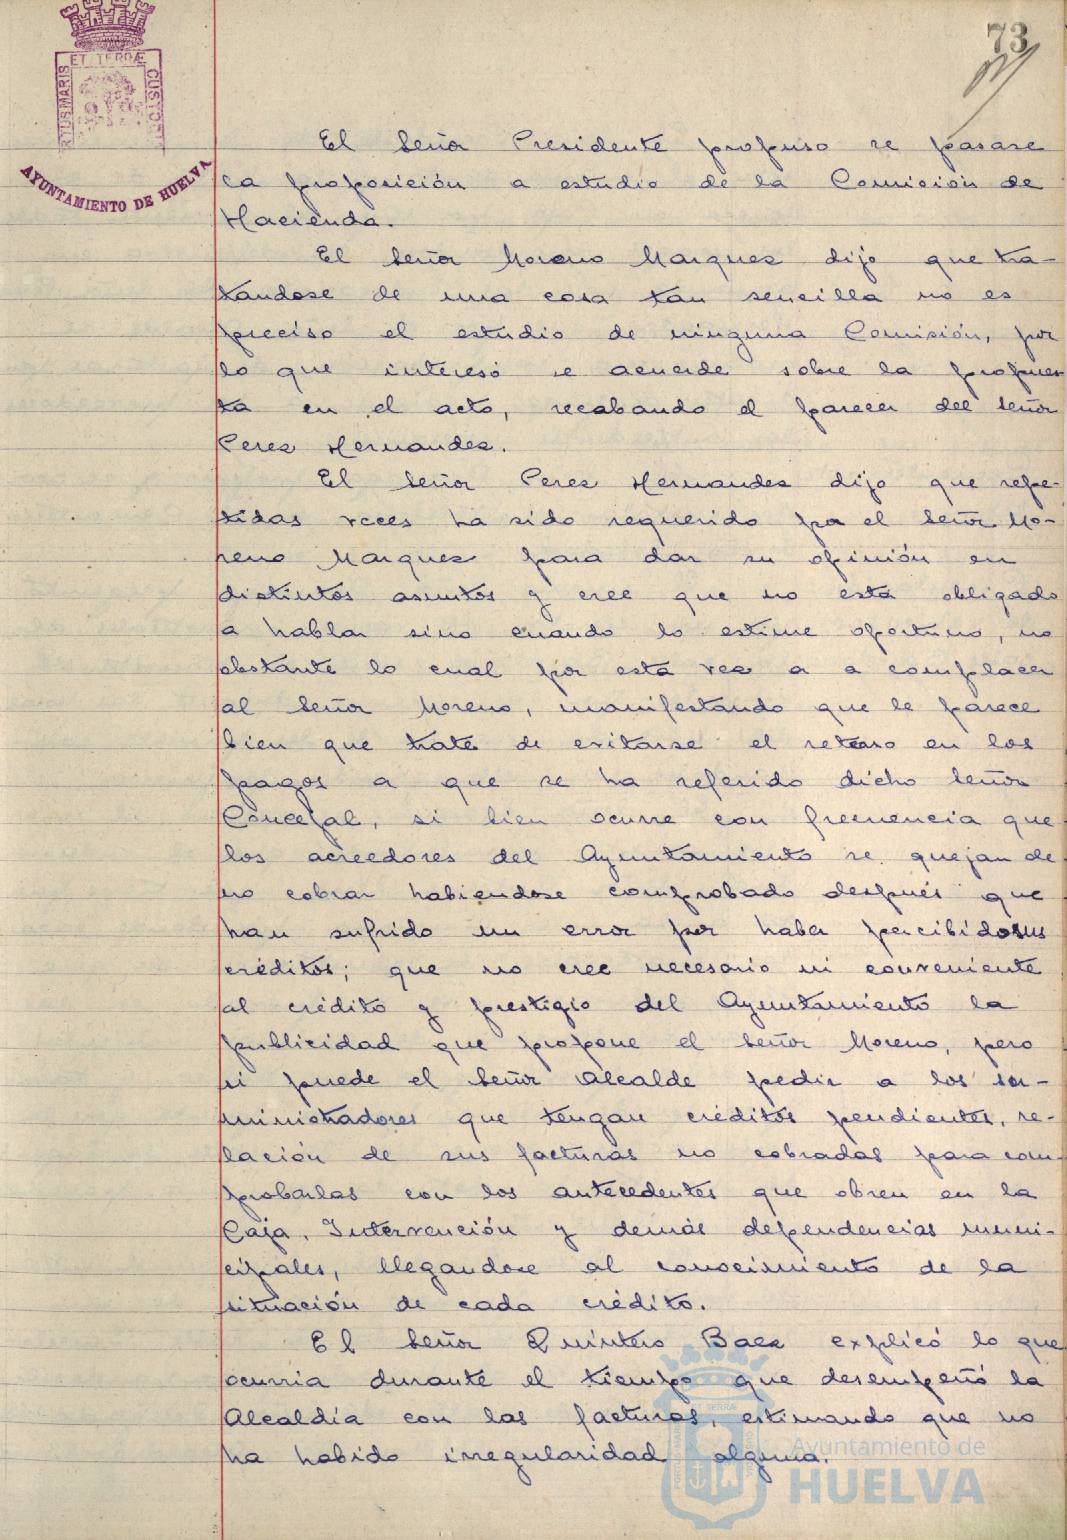 73
ET TERRÆ
PORTUS MARIS
CUSTODI
AYUNTAMIENTO DE HUELVA
El Señor Presidente propuso se pasase
la proposición a estudio de la Comisión de
Hacienda.
El Señor Moreno Marquez dijo que tra-
tandose de una cosa tan sencilla no es
preciso el estudio de ninguna Comisión, por
lo que interesó se acuerde sobre la propues
ta en el acto, recabando el parecer del Señor
Perez Hernandez.
El Señor Perez Hernandez dijo que repe-
tidas veces ha sido requerido por el Señor Mo-
reno Marquez para dar su opinión en
distintos asuntos y cree que no está obligado
a hablar sino cuando lo estime oportuno, no
obstante lo cual por esta vez a a complacer
al Señor Moreno, manifestando que le parece
bien que trate de evitarse el retraso en los
pagos a que se ha referido dicho Señor
Concejal, si bien ocurre con frecuencia que
los acreedores del Ayuntamiento se quejan de
no cobrar habiendose comprobado después que
han sufrido un error por haber percibido sus
créditos; que no cree necesario ni conveniente
al crédito y prestigio del Ayuntamiento la
publicidad que propone el Señor Moreno, pero
si puede el Señor Alcalde pedir a los su-
ministradores que tengan créditos pendientes, re-
lación de sus facturas no cobradas para com-
probarlas con los antecedentes que obren en la
Caja, Intervención y demás dependencias muni-
cipales, llegandose al conocimiento de la
situación de cada crédito.
El Señor Quintero Baez explicó lo que
ocurria durante el tiempo que desempeñó la
Alcaldía con las facturas, estimando que no
ha habido irregularidad alguna.
Ayuntamiento de
HUELVA